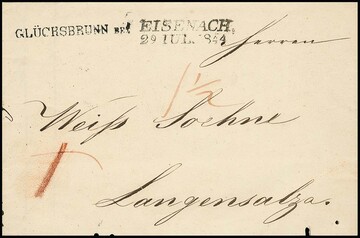 GLÜCKSBRUNN BEI EISENACH.
29 IUL. 844
Herren
1 1/2
Weiß Soehne
1
Langensalza.